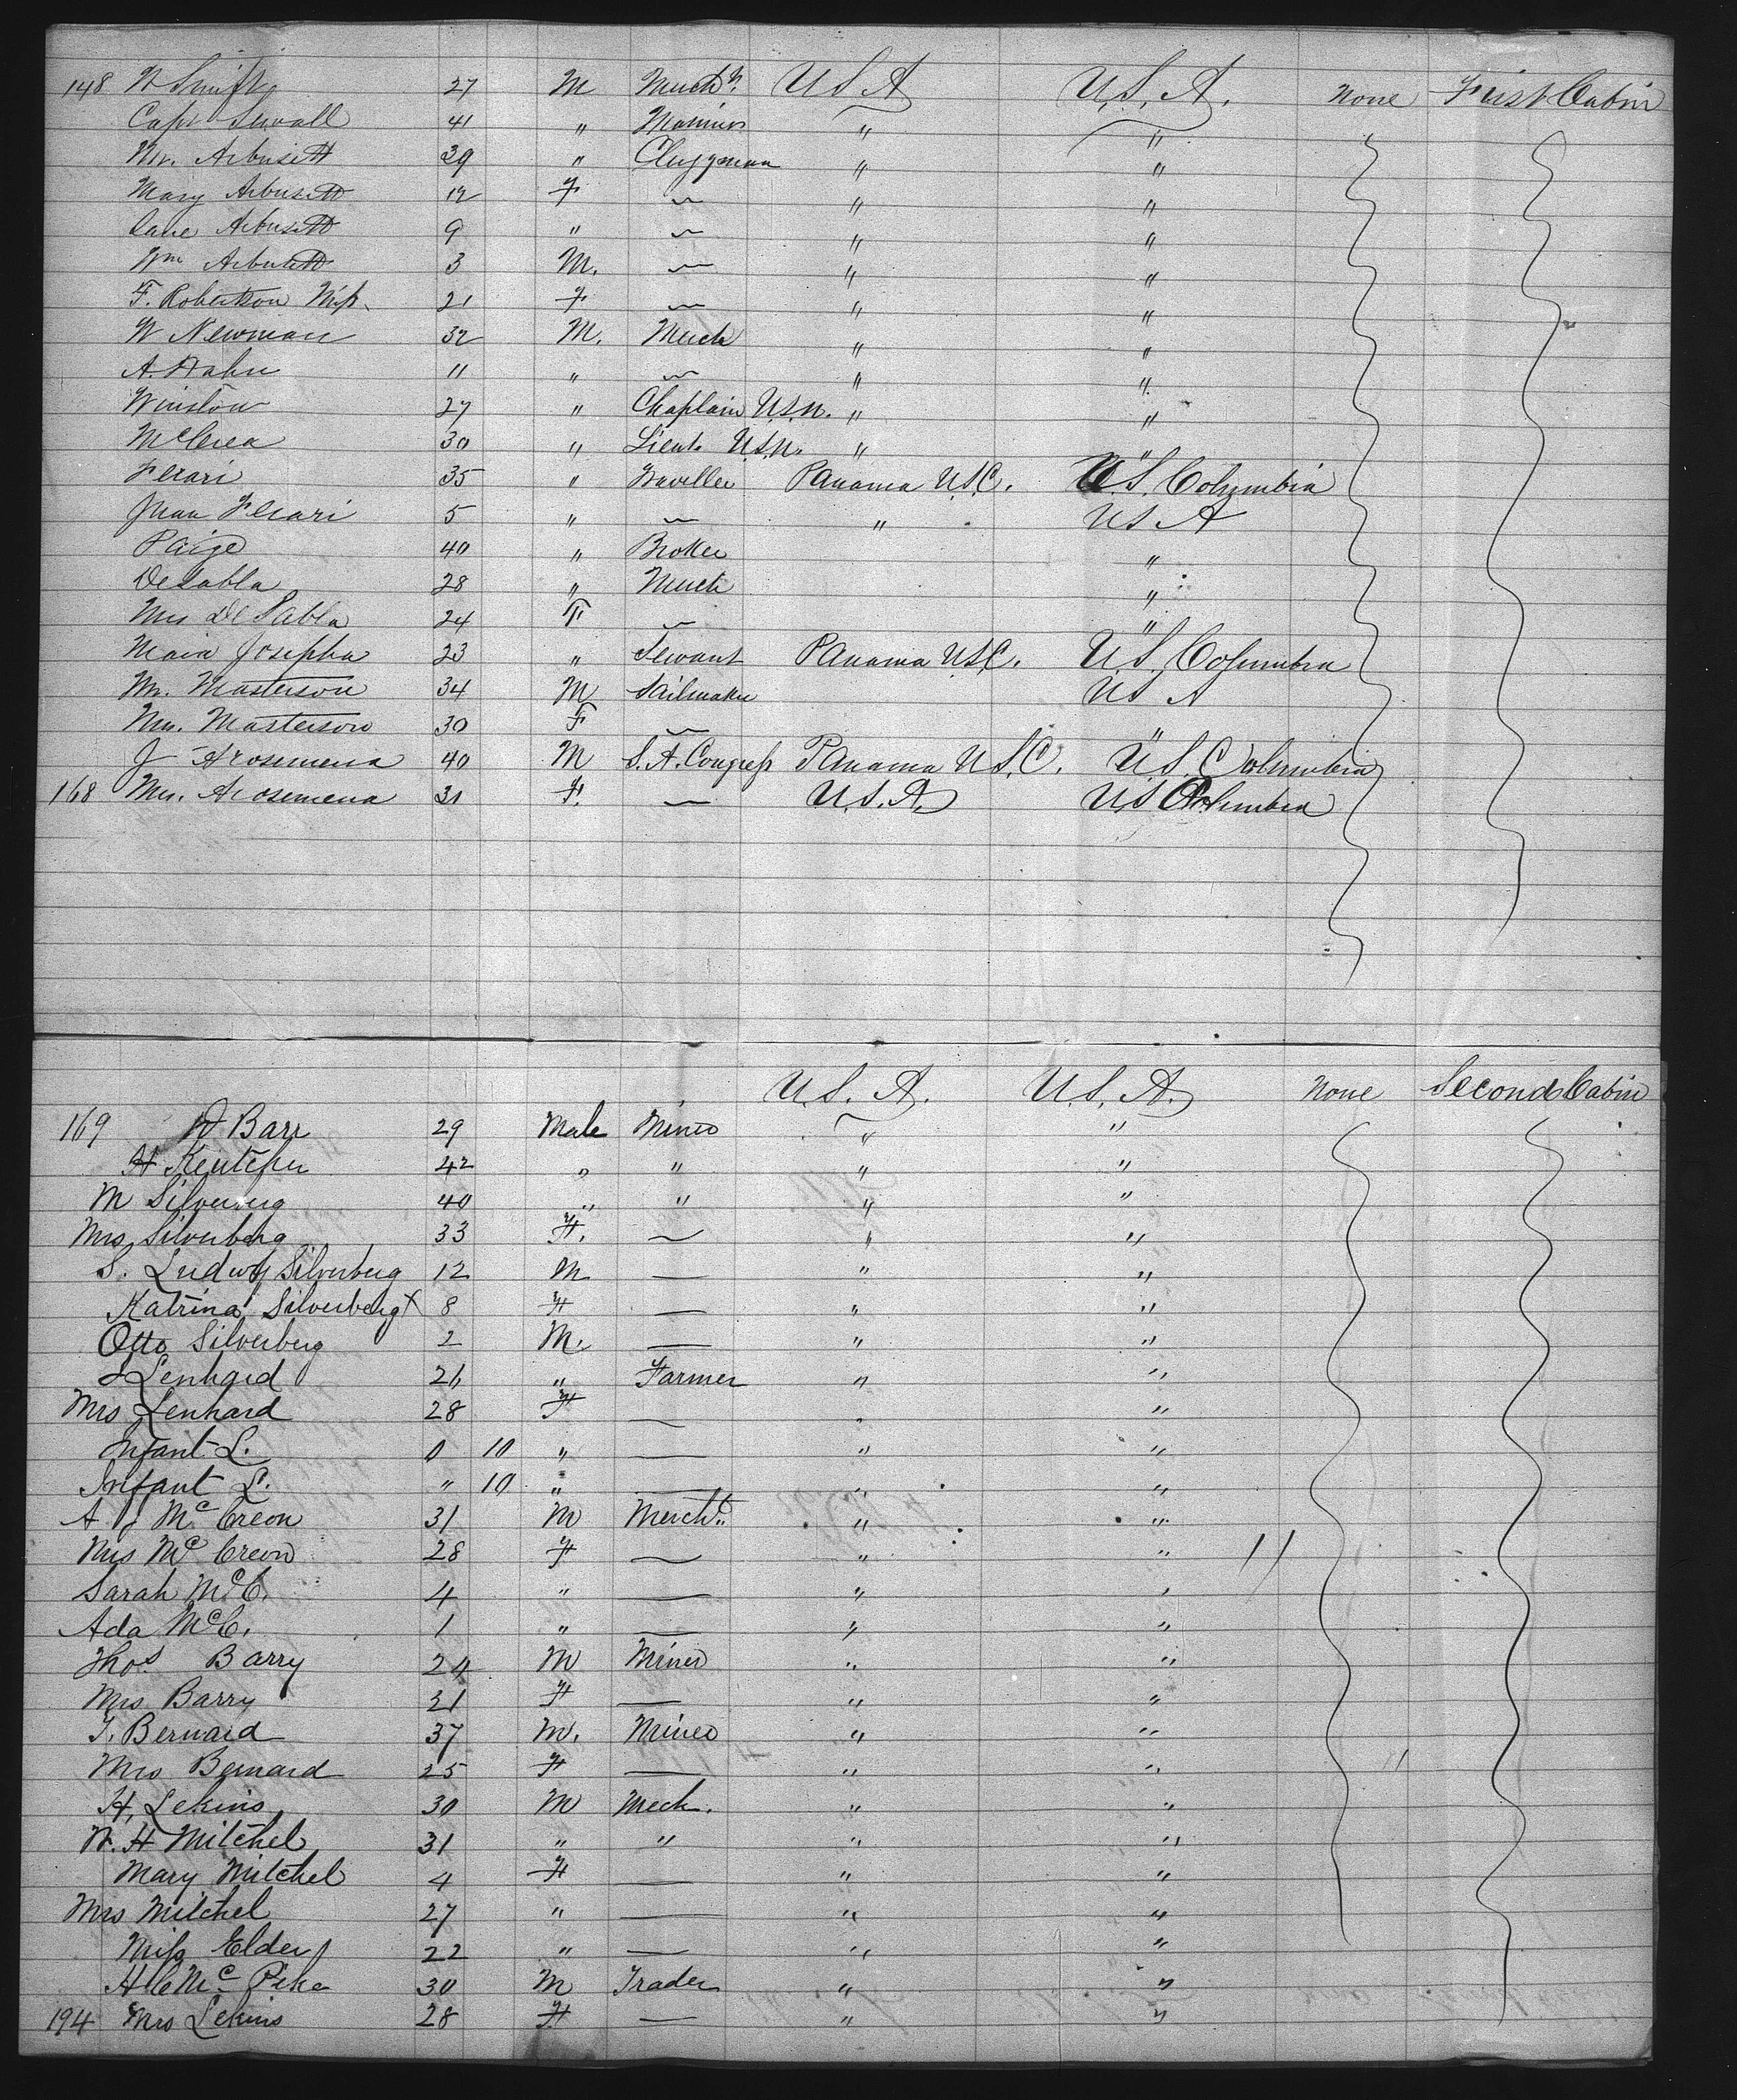 148 W Swift 27 M Mercht. U S A U.S.A. None First Cabin
Capt Sewall 41 " Mariner " "
Mr. Arbusett 39 " Clergyman " "
Mary Arbusett 12 F — " "
Jane Arbusett 9 " — " "
Wm Arbusett 3 M. — " "
F. Robertson Miss 21 F — " "
W Newman 32 M. Merch " "
A. Hahn 11 " — " "
Winston 27 " Chaplain U.S.N. " "
McCrea 30 " Lieut. U.S.N. " "
Ferari 35 " Traveller Panama U.S.C. U.S. Columbia
Juan Ferari 5 " — " U S A
Paige 40 " Broker "
De Sabla 28 " Merch "
Mrs De Sabla 24 F — "
Maria Josepha 23 " Servant Panama U.S.C. U.S. Columbia
Mr. Masterson 34 M Sailmaker U S A
Mrs. Masterson 30 F — "
J Arosemena 40 M S.A. Congress Panama U.S.C. U.S. Columbia
168 Mrs. Arosemena 31 F. — U.S.A. U S Columbia
U.S.A. U.S.A. None Second Cabin
169 W Barr 29 Male Miner " "
H 42 " " " "
M Silverberg 40 " " " "
Mrs Silverberg 33 F. — " "
S. Ludwig Silverberg 12 M — " "
Katrina Silverberg 8 F — " "
Otto Silverberg 2 M. — " "
Lenhard 26 " Farmer " "
Mrs Lenhard 28 F — " "
Infant L. 0 10 " — " "
Infant L. " 10 " — " "
A J McCreon 31 M Mercht. " "
Mrs McCreon 28 F — " "
Sarah McC. 4 " — " "
Ada McC. 1 " — " "
Thos Barry 24 M Miner " "
Mrs Barry 21 F — " "
T. Bernard 37 M. Miner " "
Mrs Bernard 25 F — " "
H. Lekins 30 M Mech. " "
W. H Mitchel 31 " " " "
Mary Mitchel 4 F — " "
Mrs Mitchel 27 " — " "
Miss Elder 22 " — " "
H C McPike 30 M Trader " "
194 Mrs Lekins 28 F — " "